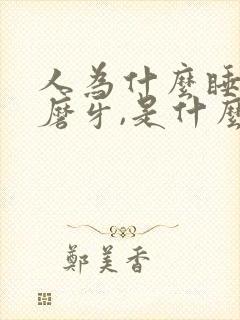 人為什麼睡
磨牙,是什麼
鄭美香